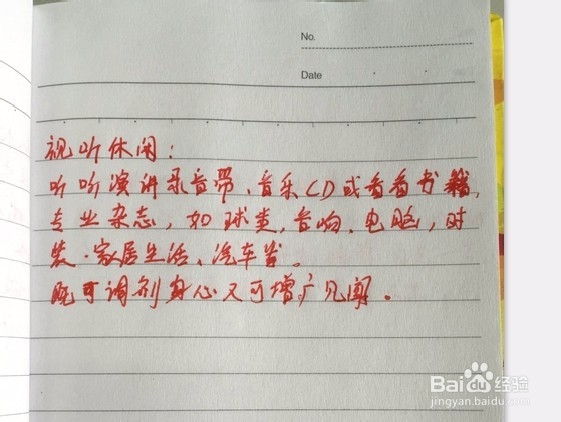 No.
Date
视听休闲：
听听演讲录音带、音乐CD或看看书籍，
专业杂志，如球类，音响、电脑，时
装、家居生活、汽车等。
既可调剂身心又可增广见闻。
Baidu经验
jingyan.baidu.com